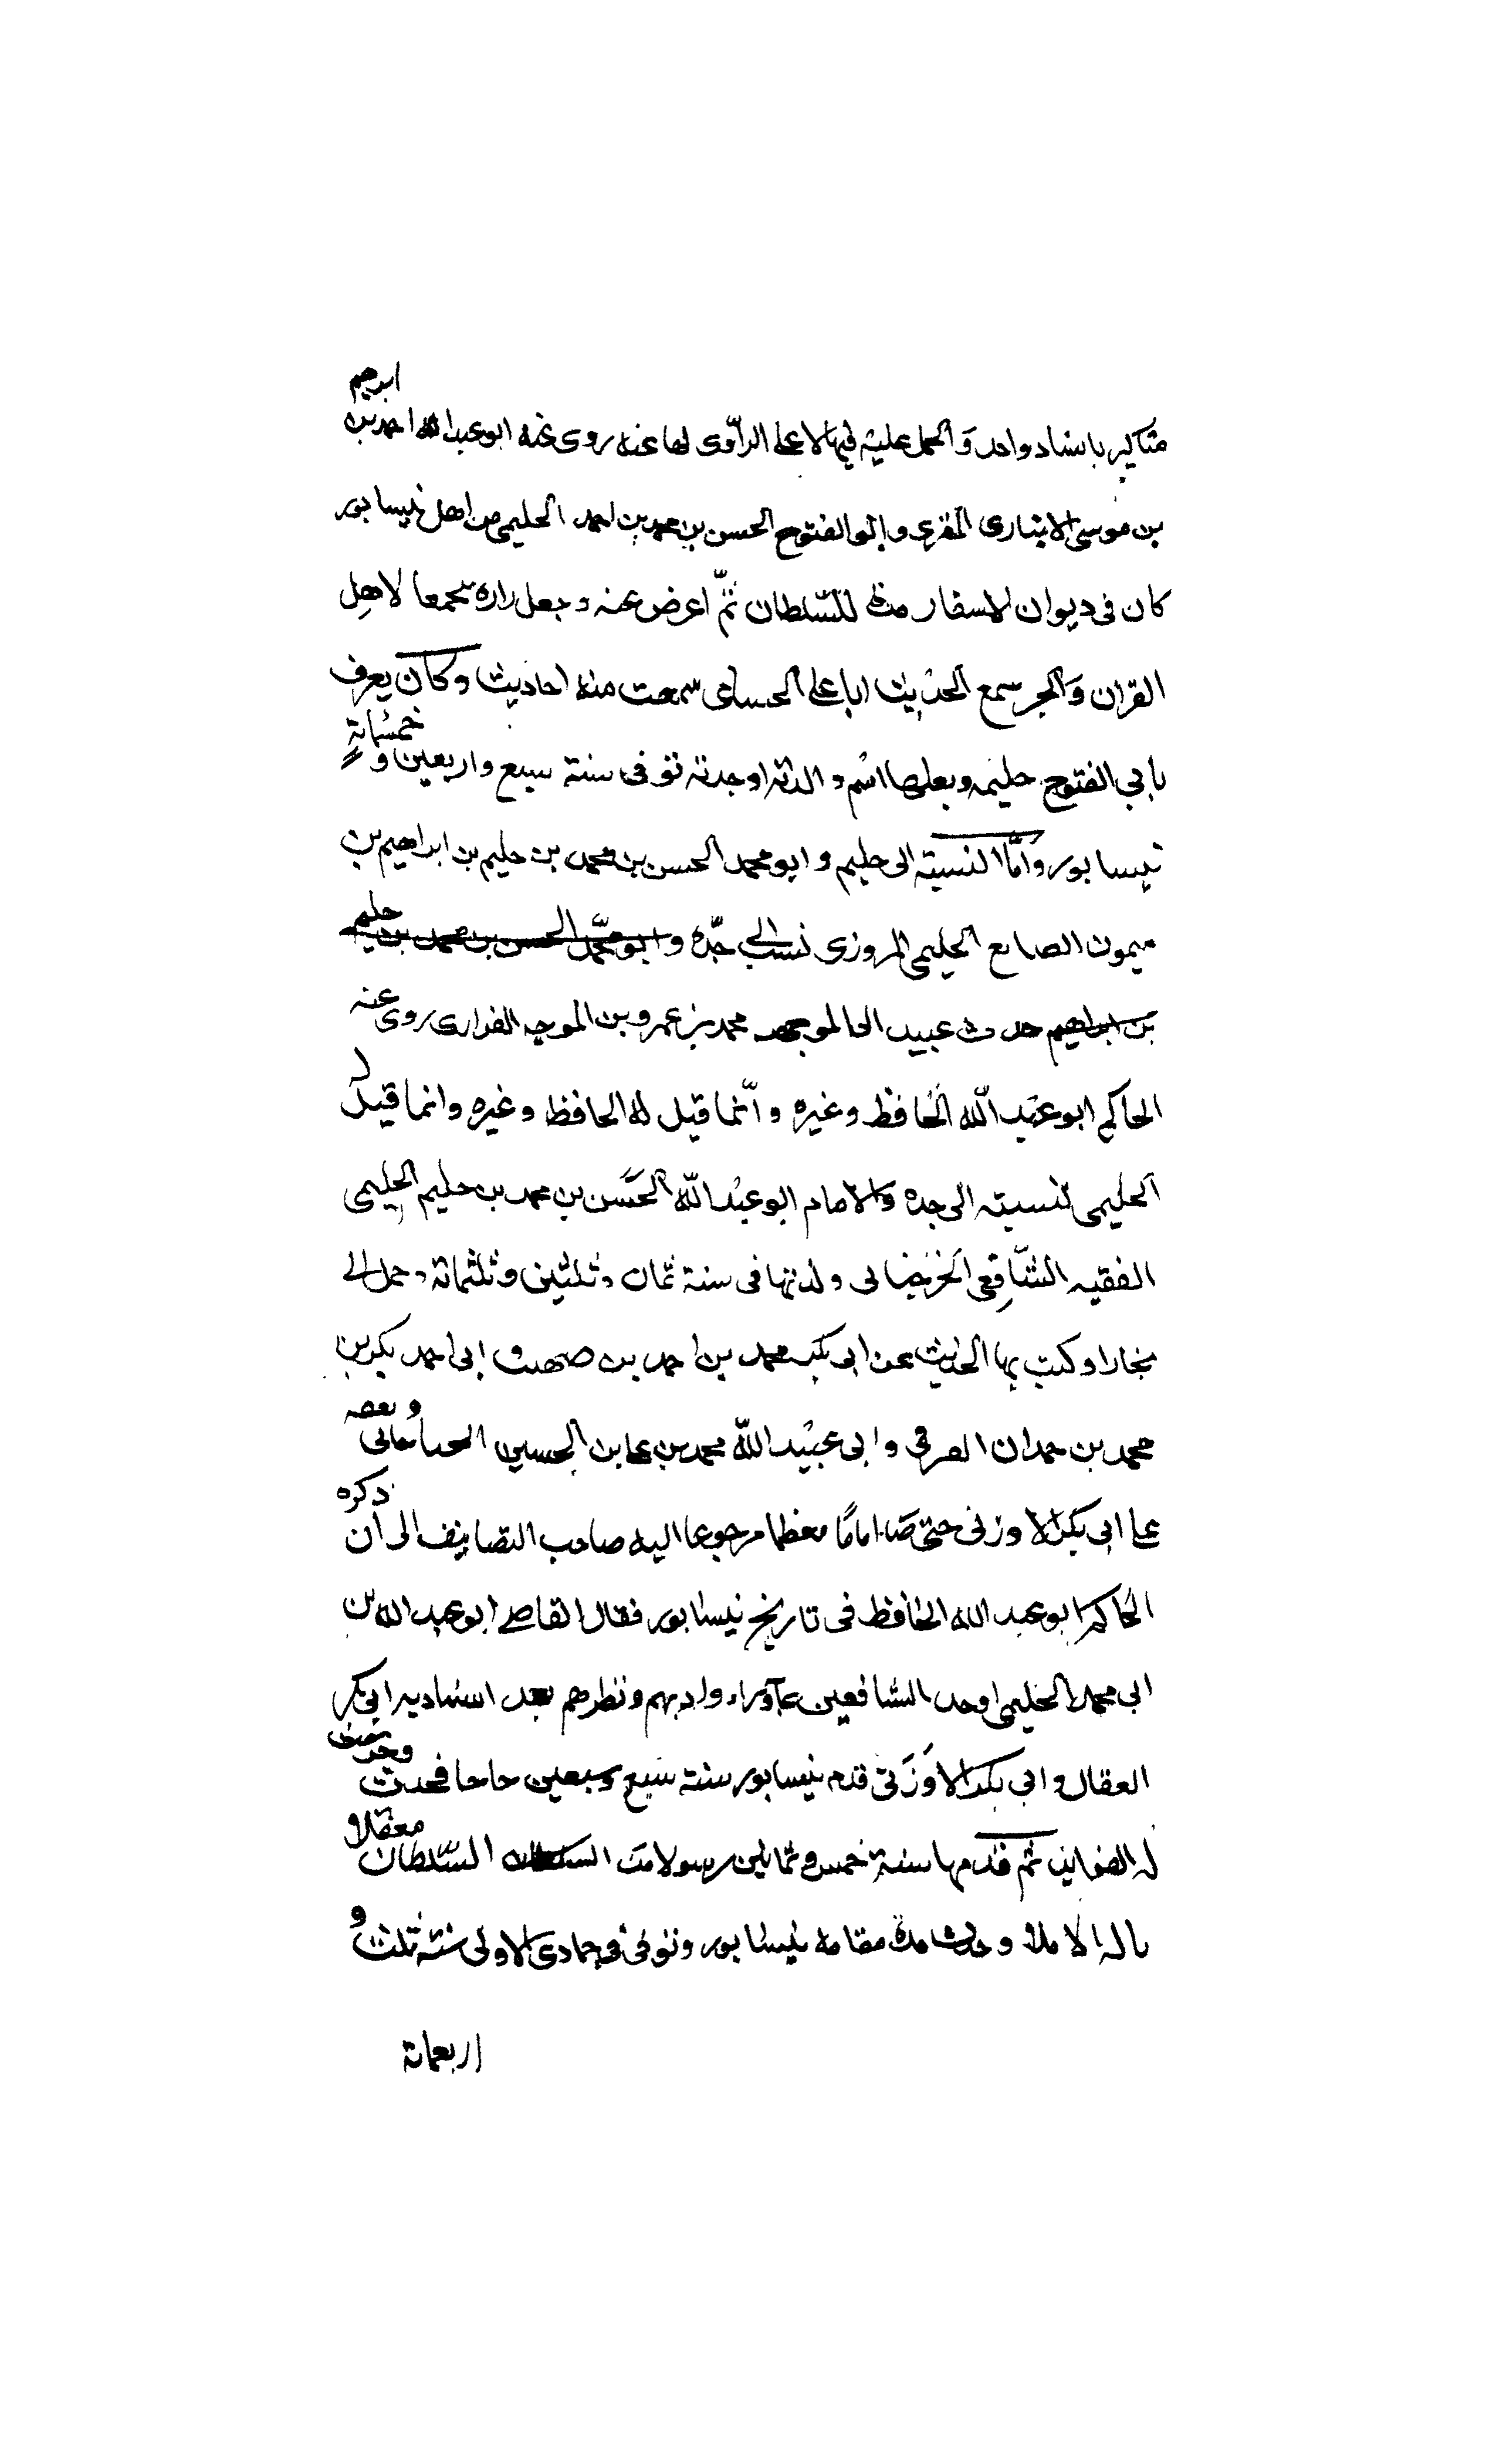 مناكير باسناد واحد والحمل عليه فيها لا على الراوى لها عنه روى عنه ابو عبد الله احمد بن ابرهيم
بن موسى الابنارى المقرى وابو الفتوح الحسن بن محمد بن احمد الحليمى من اهل نيسابور
كان فى ديوان الاسفار للسلطان ثمّ اعرض عنه وجعل داره مجمعا لاهل
القران والحبر سمع الحديث ابا على الحسناى سمعت منه احاديث وكان يعرف
بابي الفتوح حليمه ولعلها اسم والدته او جدته توفى سنة سبع واربعين وخمسمائة
نيسابور وأمّا النسبة الى حليم وابو محمد الحسن بن محمد بن حليم بن ابراهيم بن
ميمون الصايع الحليمى المروزى نسب الى جدّه وابو محمّد الحسن بن محمد بن حليم
بن ابراهيم حدث عبيد محمد بن عمرو بن الموجه الفزارى روى عنه
الحاكم ابو عبد الله الحافظ وغيره وانّما قيل له الحافظ وغيره وانما قيل له
الحليمى لنسبته الى جده والامام ابو عبد الله الحسن بن محمد بن حليم الحليمى
الفقيه الشّافِعى ولد بها فى سنة ثمان وثلثين وثلثمائة وحمل الى
بخارا وكتب بها الحديث عن ابى بكر محمد بن احمد بن وابى احمد بكر بن
محمد بن حمدان وابى عبيد الله محمد بن على بن الحسين وتفقه
على ابى بكر الاوزنى حتى صَار امامًا معظما مرجوعا اليه صاحب التصانيف الى ان ذكره
الحاكم ابو عبد الله الحافظ فى تاريخ نيسابور فقال القاضى ابو عبد الله بن
ابى محمد الحليمى اوحد الشافعين بما وراء وادبهم ونظرهم بعد استاديه ابى بكر
القفال وابى بكر الاوَزَنى قدم نيسابور سنة سَبع وسبعين حاجا فحدث وخرجت
له الفوايد ثم قدمها سنة خمس وثمانين رسولا من السلطان السّلطان
الاملا وحدث مدة مقامه بنيسابور وتوفى فى جمادى الاولى سنة ثلث و
اربعمائة